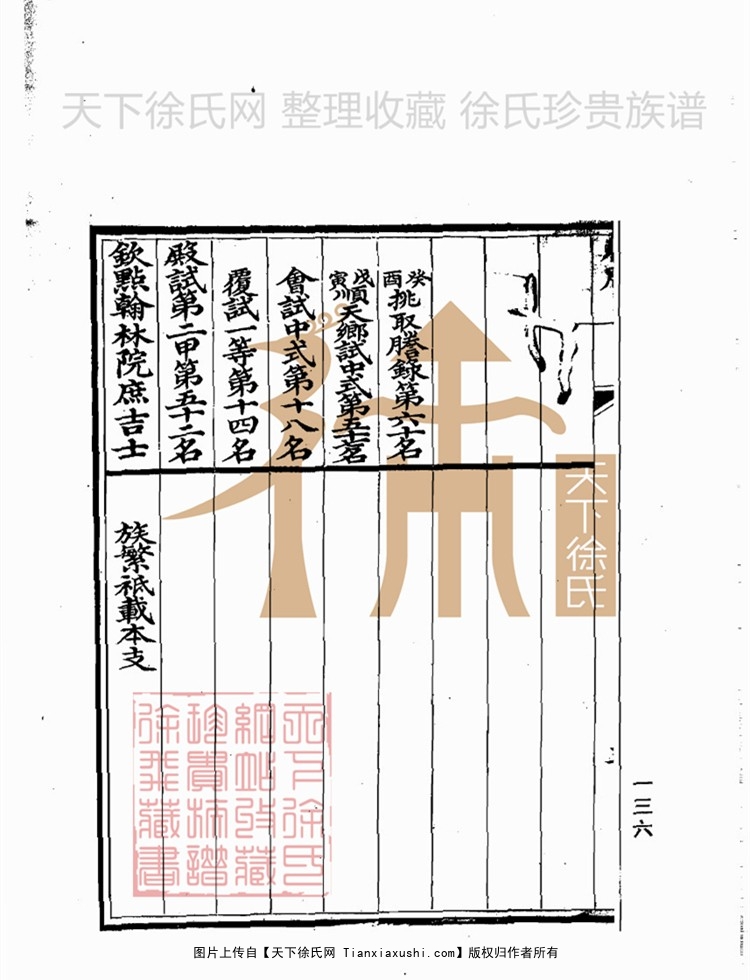 天下徐氏网 整理收藏 徐氏珍贵族谱
癸酉挑取謄錄第六十名
戊寅順天鄉試中式第五十名
會試中式第十八名
覆試一等第十四名
殿試第二甲第五十二名
欽點翰林院庶吉士
族繁祇載本支
天下徐氏
一三六
天下徐氏
網站收藏
珍貴族譜
徐飛藏書
图片上传自【天下徐氏网 Tianxiaxushi.com】版权归作者所有